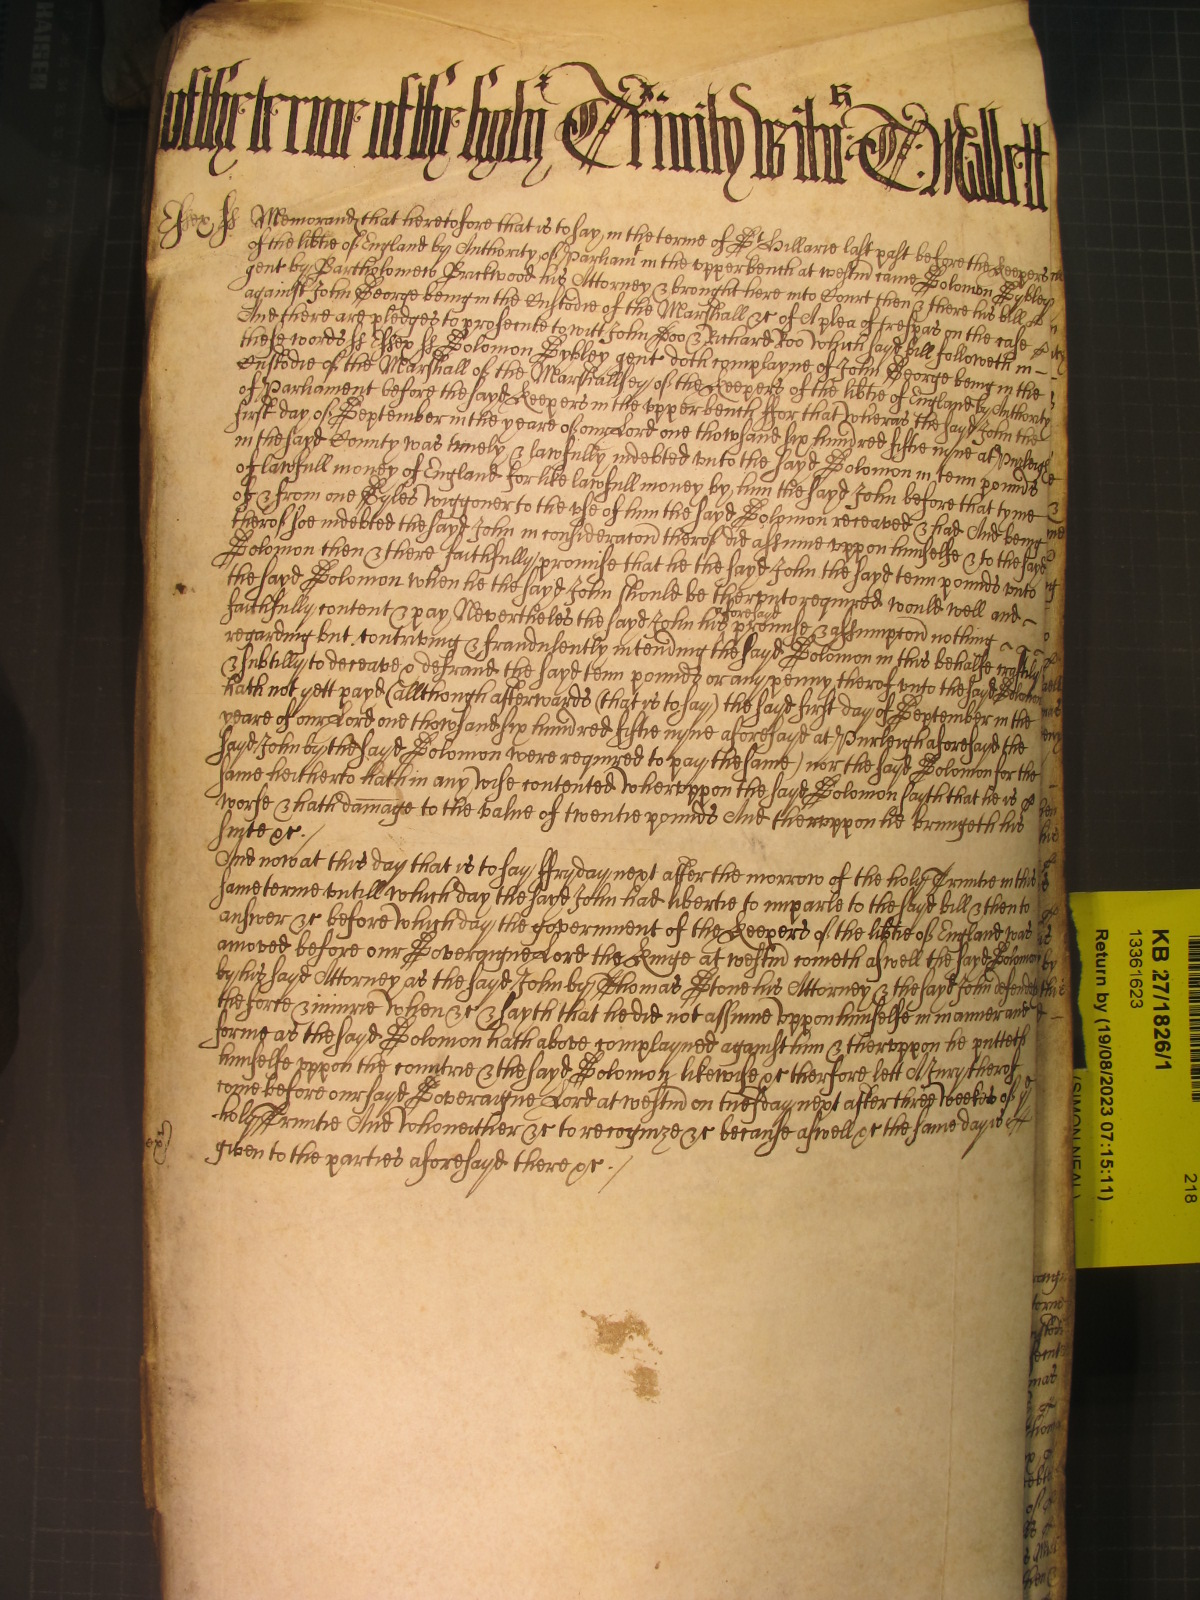 of the terme of the holy Trinity witn: T: Mallett
Essex ss Memorand that heretofore that is to say in the terme of St Hillarie last past before the Keepers
of the libtie of England by Authority of Parliamt in the upper bench at westm came Solomon Sybley
gent by Bartholomew Brickwood his Attorney & brought here into Court then & there his bill
against John George being in the Custodie of the Marshall &c of A plea of trespas on the case
And there are pledges to prosecute to witt John Doo & Richard Roo Which sayd bill followeth in
these words ss Essex ss Solomon Sybley gent doth complayne of John George being in the
Custodie of the Marshall of the Marshallsey of the Keepers of the libtie of England by Authority
of Parliament before the sayd Keepers in the upper bench ffor that wheras the sayd John the
first day of September in the yeare of our Lord one thowsand six hundred fiftie nyne at Purleigh
in the sayd County was truely & lawfully indebted unto the sayd Solomon in tenn pounds
of lawfull money of England for like lawfull money by him the sayd John before that tyme
of & from one Gyles Wiggoner to the use of him the sayd Solomon receaved & had And being
therof soe indebted the sayd John in consideracon therof did assume uppon himselfe & to the sayd
Solomon then & there faithfully promise that he the sayd John the sayd tenn pounds unto
the sayd Solomon when he the sayd John should be therunto required would well and
faithfully content & pay Nevertheles the sayd John his aforesayd promise & assumpcon nothing
regarding but contriving & fraudulently intending the sayd Solomon in this behalfe craftily
& subtilly to deceave & defraud the sayd tenn pounds or any penny therof unto the sayd Solomon
hath not yett payd (allthough afterwards (that is to say) the sayd first day of September in the
yeare of our Lord one thowsand six hundred fiftie nyne aforesayd at Purleigh aforesayd the
sayd John by the sayd Solomon were required to pay the same) nor the sayd Solomon for the
same heitherto hath in any wise contented Wheruppon the sayd Solomon sayth that he is
worse & hath damage to the value of twentie pounds And theruppon he bringeth his
suite &c.
And now at this day that is to say ffryday next after the morrow of the holy Trinitie in this
same terme untill which day the sayd John had libertie to imparle to the sayd bill & then to
answer &c before which day the government of the Keepers of the libtie of England was
amoved before our Soveraigne Lord the Kinge at westm cometh aswell the sayd Solomon
by his sayd Attorney as the sayd John by Thomas Stone his Attorney & the sayd John defends
the force & iniurie when &c & sayth that he did not assume uppon himselfe in manner and
forme as the sayd Solomon hath above complayned against him & theruppon he putteth
himselfe uppon the countrie & the sayd Solomon likewise &c therfore lett A Jury therof
come before our sayd Soveraigne Lord at westm on tuesday next after three weekes of ye
holy Trinitie And who neither &c to recognize &c because aswell &c the same day is
given to the parties aforesayd there &c.
KB 27/1826/1
13361623
Return by (19/08/2023 07:15:11)
(SIMON NEAL)
218